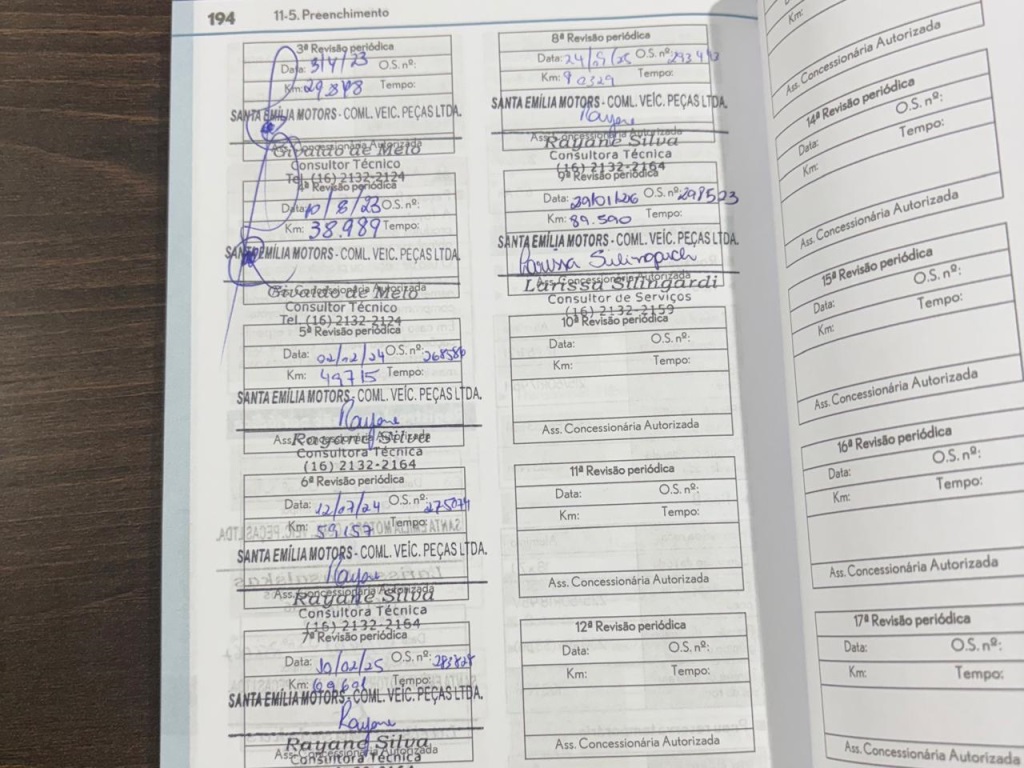 194 11-5. Preenchimento
3ª Revisão periódica
Data: 3/4/23 O.S. nº:
Km: 29.878 Tempo:
SANTA EMÍLIA MOTORS - COML. VEÍC. PEÇAS LTDA.
Ass. Concessionária Autorizada
Givaldo de Melo
Consultor Técnico
Tel. (16) 2132-2124
4ª Revisão periódica
Data: 10/8/23 O.S. nº:
Km: 38.989 Tempo:
SANTA EMÍLIA MOTORS - COML. VEÍC. PEÇAS LTDA.
Ass. Concessionária Autorizada
Givaldo de Melo
Consultor Técnico
Tel. (16) 2132-2124
5ª Revisão periódica
Data: 02/12/24 O.S. nº: 268580
Km: 49715 Tempo:
SANTA EMÍLIA MOTORS - COML. VEÍC. PEÇAS LTDA.
Rayane
Ass. Concessionária Autorizada
Rayane Silva
Consultora Técnica
(16) 2132-2164
6ª Revisão periódica
Data: 12/07/24 O.S. nº: 275074
Km: 59.157 Tempo:
SANTA EMÍLIA MOTORS - COML. VEÍC. PEÇAS LTDA.
Rayane
Ass. Concessionária Autorizada
Rayane Silva
Consultora Técnica
(16) 2132-2164
7ª Revisão periódica
Data: 10/02/25 O.S. nº:
Km: Tempo:
SANTA EMÍLIA MOTORS - COML. VEÍC. PEÇAS LTDA.
Rayane
Ass. Concessionária Autorizada
Rayane Silva
8ª Revisão periódica
Data: O.S. nº:
Km: Tempo:
SANTA EMÍLIA MOTORS - COML. VEÍC. PEÇAS LTDA.
Rayane
Ass. Concessionária Autorizada
Rayane Silva
Consultora Técnica
(16) 2132-2164
9ª Revisão periódica
Data: 29/01/26 O.S. nº: 298523
Km: 89.590 Tempo:
SANTA EMÍLIA MOTORS - COML. VEÍC. PEÇAS LTDA.
Larissa Silingardi
Ass. Concessionária Autorizada
Larissa Silingardi
Consultor de Serviços
(16) 2132-2159
10ª Revisão periódica
Data: O.S. nº:
Km: Tempo:
Ass. Concessionária Autorizada
11ª Revisão periódica
Data: O.S. nº:
Km: Tempo:
Ass. Concessionária Autorizada
12ª Revisão periódica
Data: O.S. nº:
Km: Tempo:
Ass. Concessionária Autorizada
Km:
Ass. Concessionária Autorizada
14ª Revisão periódica
Data: O.S. nº:
Km: Tempo:
Ass. Concessionária Autorizada
15ª Revisão periódica
Data: O.S. nº:
Km: Tempo:
Ass. Concessionária Autorizada
16ª Revisão periódica
Data: O.S. nº:
Km: Tempo:
Ass. Concessionária Autorizada
17ª Revisão periódica
Data: O.S. nº:
Km: Tempo:
Ass. Concessionária Autorizada